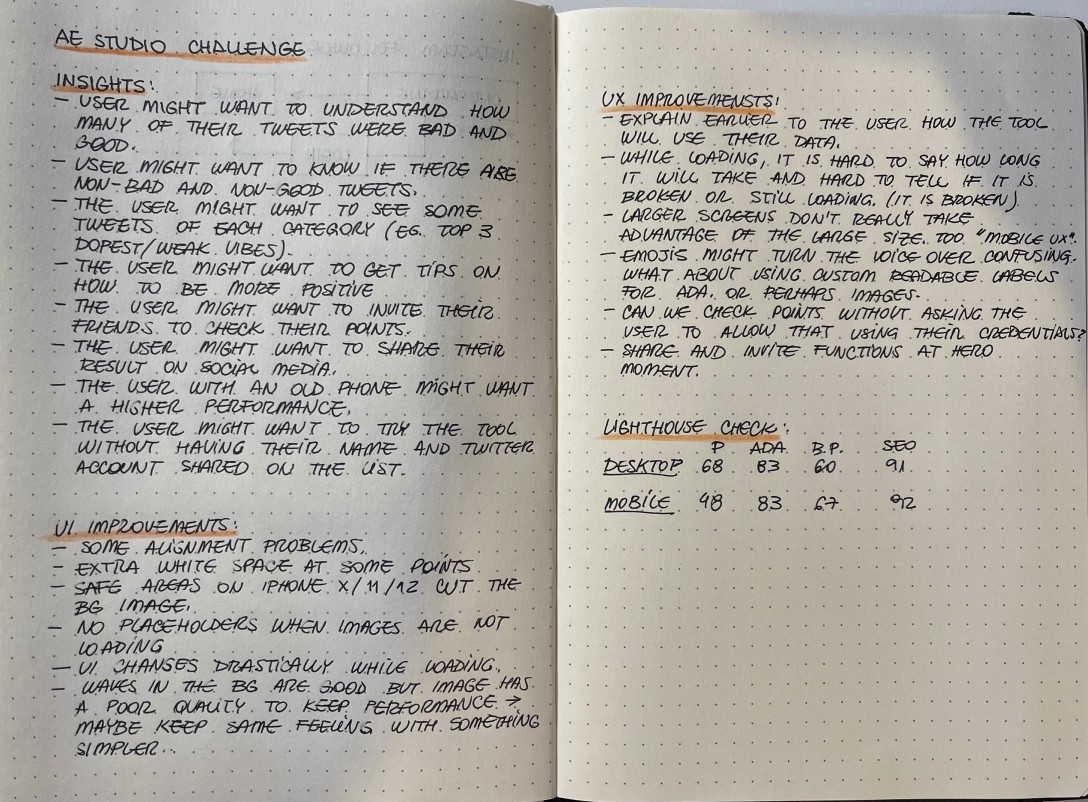 AE STUDIO CHALLENGE
INSIGHTS:
- USER MIGHT WANT TO UNDERSTAND HOW
MANY OF THEIR TWEETS WERE BAD AND
GOOD.
- USER MIGHT WANT TO KNOW IF THERE ARE
NON-BAD AND NON-GOOD TWEETS.
- THE USER MIGHT WANT TO SEE SOME
TWEETS OF EACH CATEGORY (EG. TOP 3
DOPEST/WEAK VIBES).
- THE USER MIGHT WANT TO GET TIPS ON
HOW TO BE MORE POSITIVE
- THE USER MIGHT WANT TO INVITE THEIR
FRIENDS TO CHECK THEIR POINTS.
- THE USER MIGHT WANT TO SHARE THEIR
RESULT ON SOCIAL MEDIA.
- THE USER WITH AN OLD PHONE MIGHT WANT
A HIGHER PERFORMANCE.
- THE USER MIGHT WANT TO TRY THE TOOL
WITHOUT HAVING THEIR NAME AND TWITTER
ACCOUNT SHARED ON THE LIST.
UI IMPROVEMENTS:
- SOME ALIGNMENT PROBLEMS.
- EXTRA WHITE SPACE AT SOME POINTS
- SAFE AREAS ON IPHONE X/11/12 CUT THE
BG IMAGE.
- NO PLACEHOLDERS WHEN IMAGES ARE NOT
LOADING
- UI CHANGES DRASTICALLY WHILE LOADING.
- WAVES IN THE BG ARE GOOD BUT IMAGE HAS
A POOR QUALITY TO KEEP PERFORMANCE →
MAYBE KEEP SAME FEELING WITH SOMETHING
SIMPLER..
UX IMPROVEMENSTS:
- EXPLAIN EARLIER TO THE USER HOW THE TOOL
WILL USE THEIR DATA.
- WHILE LOADING, IT IS HARD TO SAY HOW LONG
IT WILL TAKE AND HARD TO TELL IF IT IS
BROKEN OR STILL LOADING. (IT IS BROKEN)
- LARGER SCREENS DON'T REALLY TAKE
ADVANTAGE OF THE LARGE SIZE. TOO "MOBILE UX".
- EMOJIS MIGHT TURN THE VOICE OVER CONFUSING.
WHAT ABOUT USING CUSTOM READABLE LABELS
FOR ADA. OR PERHAPS IMAGES.
- CAN WE CHECK POINTS WITHOUT ASKING THE
USER TO ALLOW THAT USING THEIR CREDENTIALS?
- SHARE AND INVITE FUNCTIONS AT HERO
MOMENT.
LIGHTHOUSE CHECK:
P ADA B.P. SEO
DESKTOP 68 83 60 91
MOBILE 48 83 67 92